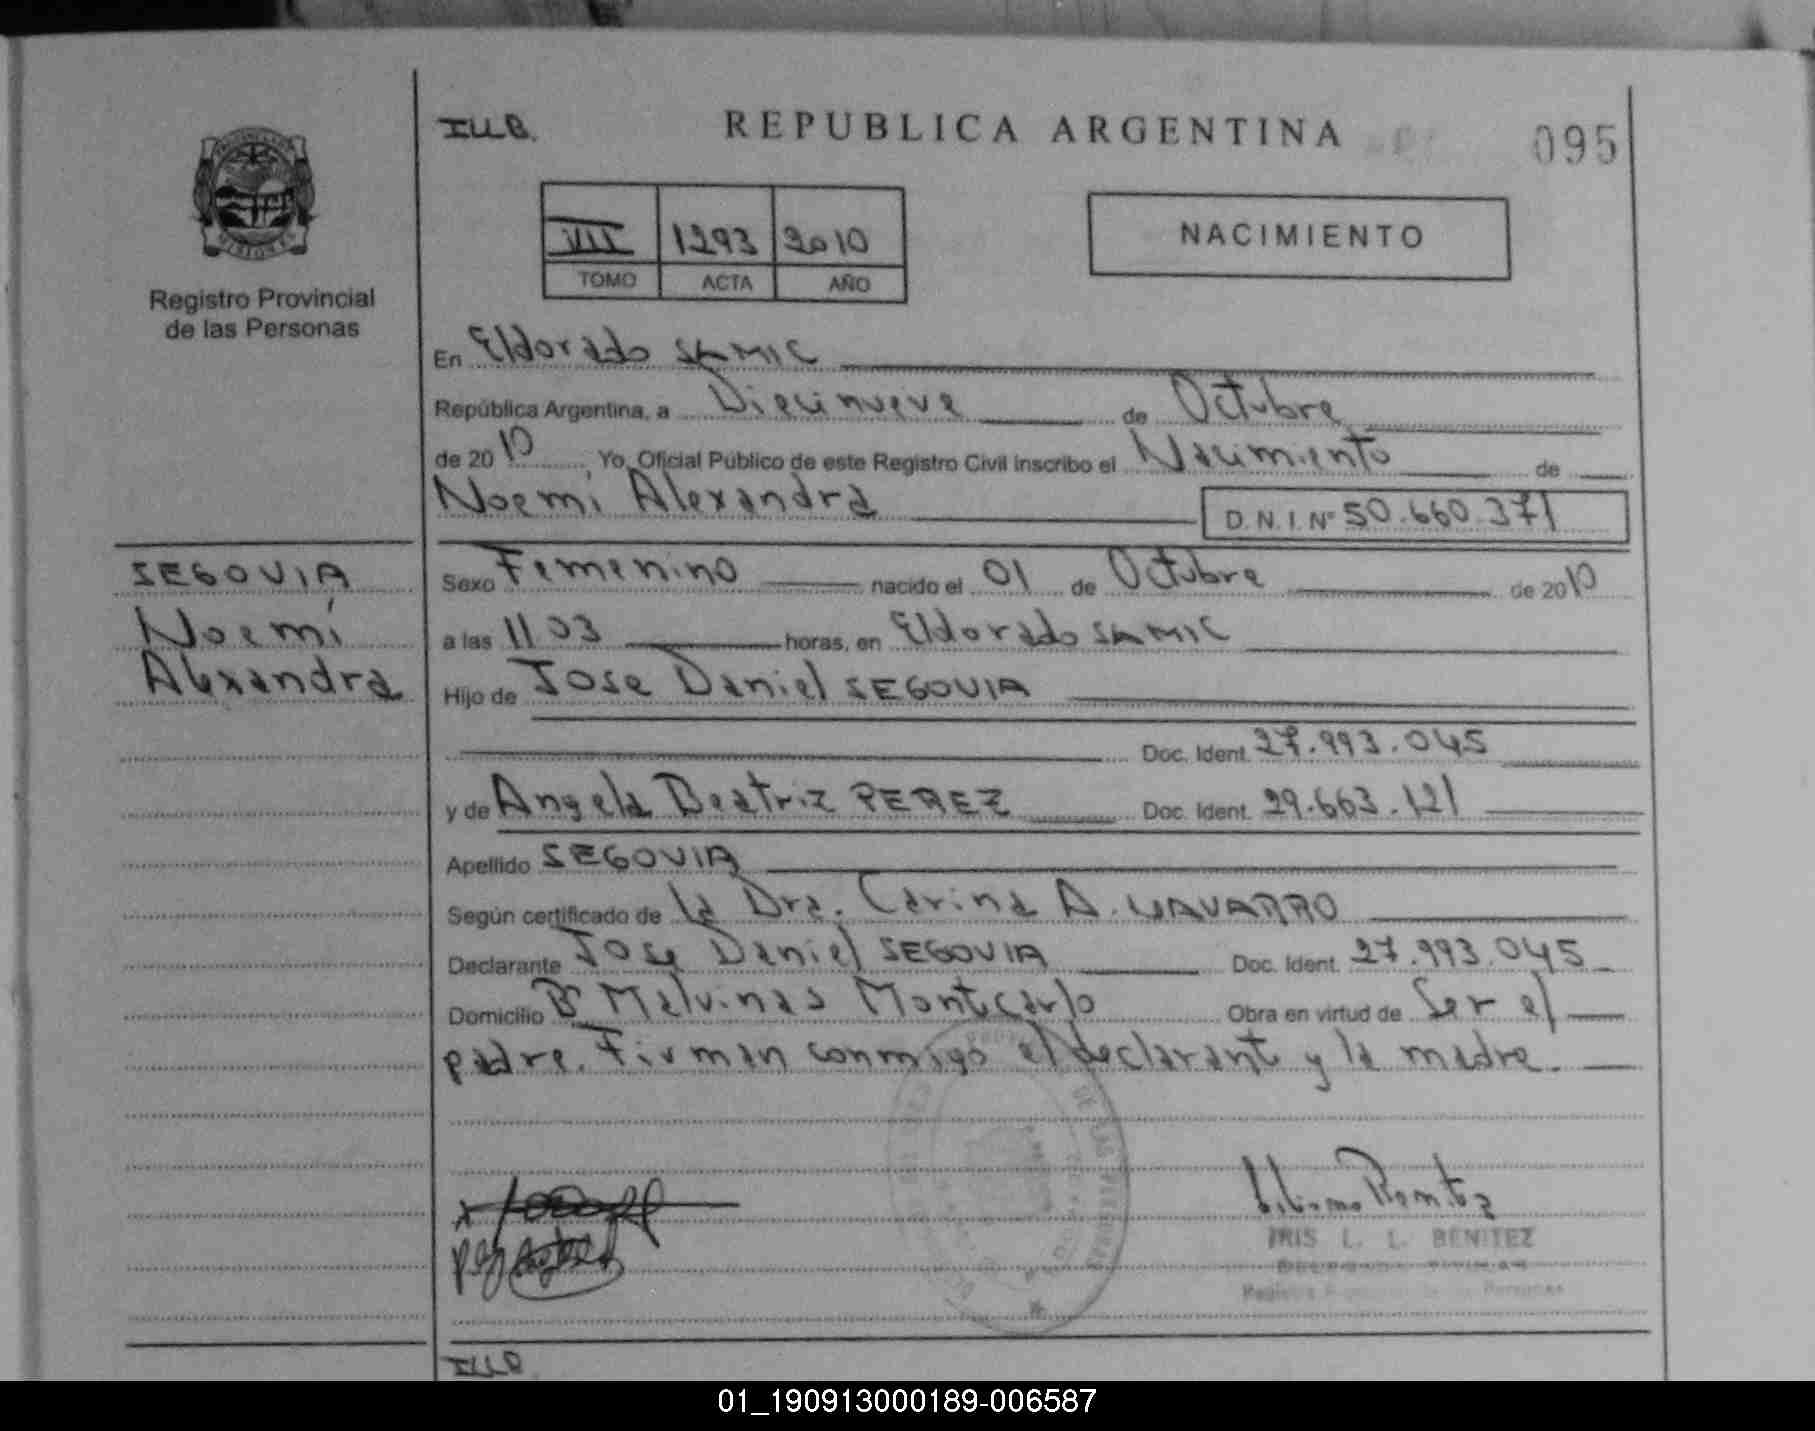 ILLB.
REPUBLICA ARGENTINA
095
VII 1293 2010
TOMO ACTA AÑO
NACIMIENTO
Registro Provincial
de las Personas
En Eldorado SAMIC
República Argentina, a Diecinueve de Octubre
de 2010 Yo, Oficial Público de este Registro Civil inscribo el Nacimiento de
Noemí Alexandra D.N.I. Nº 50.660.371
SEGOVIA
Noemí
Alexandra
Sexo Femenino nacido el 01 de Octubre de 2010
a las 11 03 horas, en Eldorado SAMIC
Hijo de Jose Daniel SEGOVIA
Doc. Ident. 27.993.045
y de Angela Beatriz PEREZ Doc. Ident. 29.663.121
Apellido SEGOVIA
Según certificado de la Dra. Carina A. NAVARRO
Declarante Jose Daniel SEGOVIA Doc. Ident. 27.993.045
Domicilio Bº Malvinas Montecarlo Obra en virtud de Ser el
padre. Firman conmigo el declarante y la madre.
DE LAS PERSONAS
IRIS L. L. BENITEZ
Personas
01_190913000189-006587